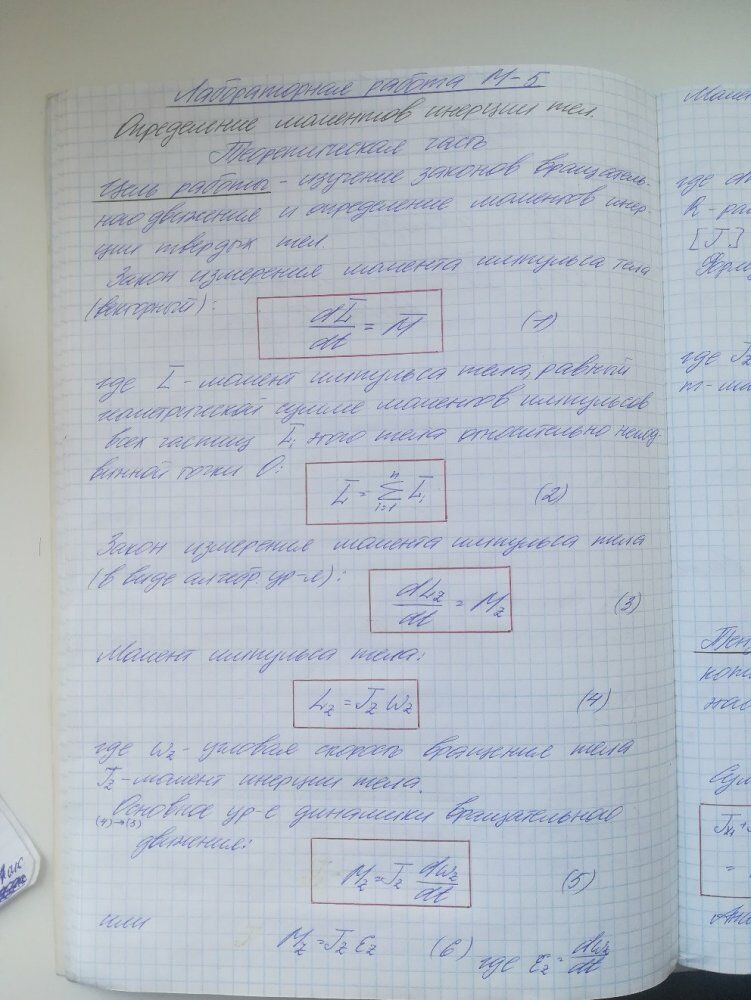 Лабораторная работа М-5
Определение моментов инерции тел.
Теоретическая часть
Цель работы - изучение законов вращатель-
ного движения и определение моментов инер-
ции твердых тел.
Закон измерения момента импульса тела
(векторный):
dL̅/dt = M̅ (1)
где L̅ - момент импульса тела, равный
геометрической сумме моментов импульсов
всех частиц L̅i этого тела относительно непод-
вижной точки О:
L̅ = Σ L̅i (i=1, n) (2)
Закон измерения момента импульса тела
(в виде алгебр. ур-я):
dLz/dt = Mz (3)
Момент импульса тела:
Lz = Jz ωz (4)
где ωz - угловая скорость вращение тела
Jz - момент инерции тела.
Основное ур-е динамики вращательного
(4)→(3)
движения:
Mz = Jz dωz/dt (5)
или
Mz = Jz εz (6) где εz = dωz/dt
где
R - ра
[J]
Форму
где Jz
m - ма
Тен
Сум
Jx1 +
=